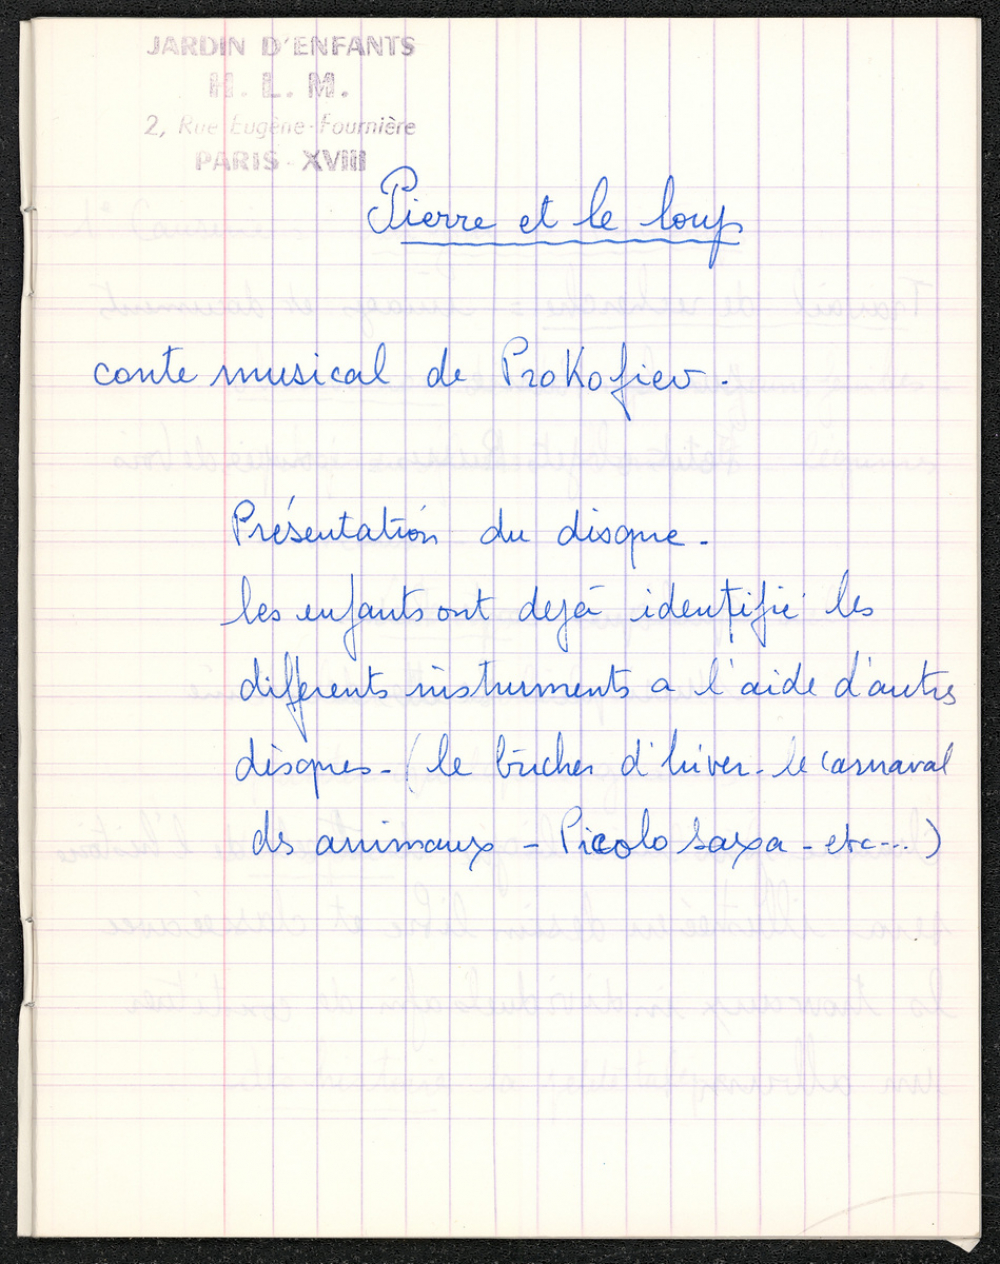 JARDIN D'ENFANTS
H. L. M.
2, Rue Eugène-Fournière
PARIS - XVIII
Pierre et le loup
conte musical de Prokofiev.
Présentation du disque.
les enfants ont dejà identifié les
différents instruments a l'aide d'autres
disques - (le bûcher d'hiver - le carnaval
des animaux - Picolo saxa - etc...)